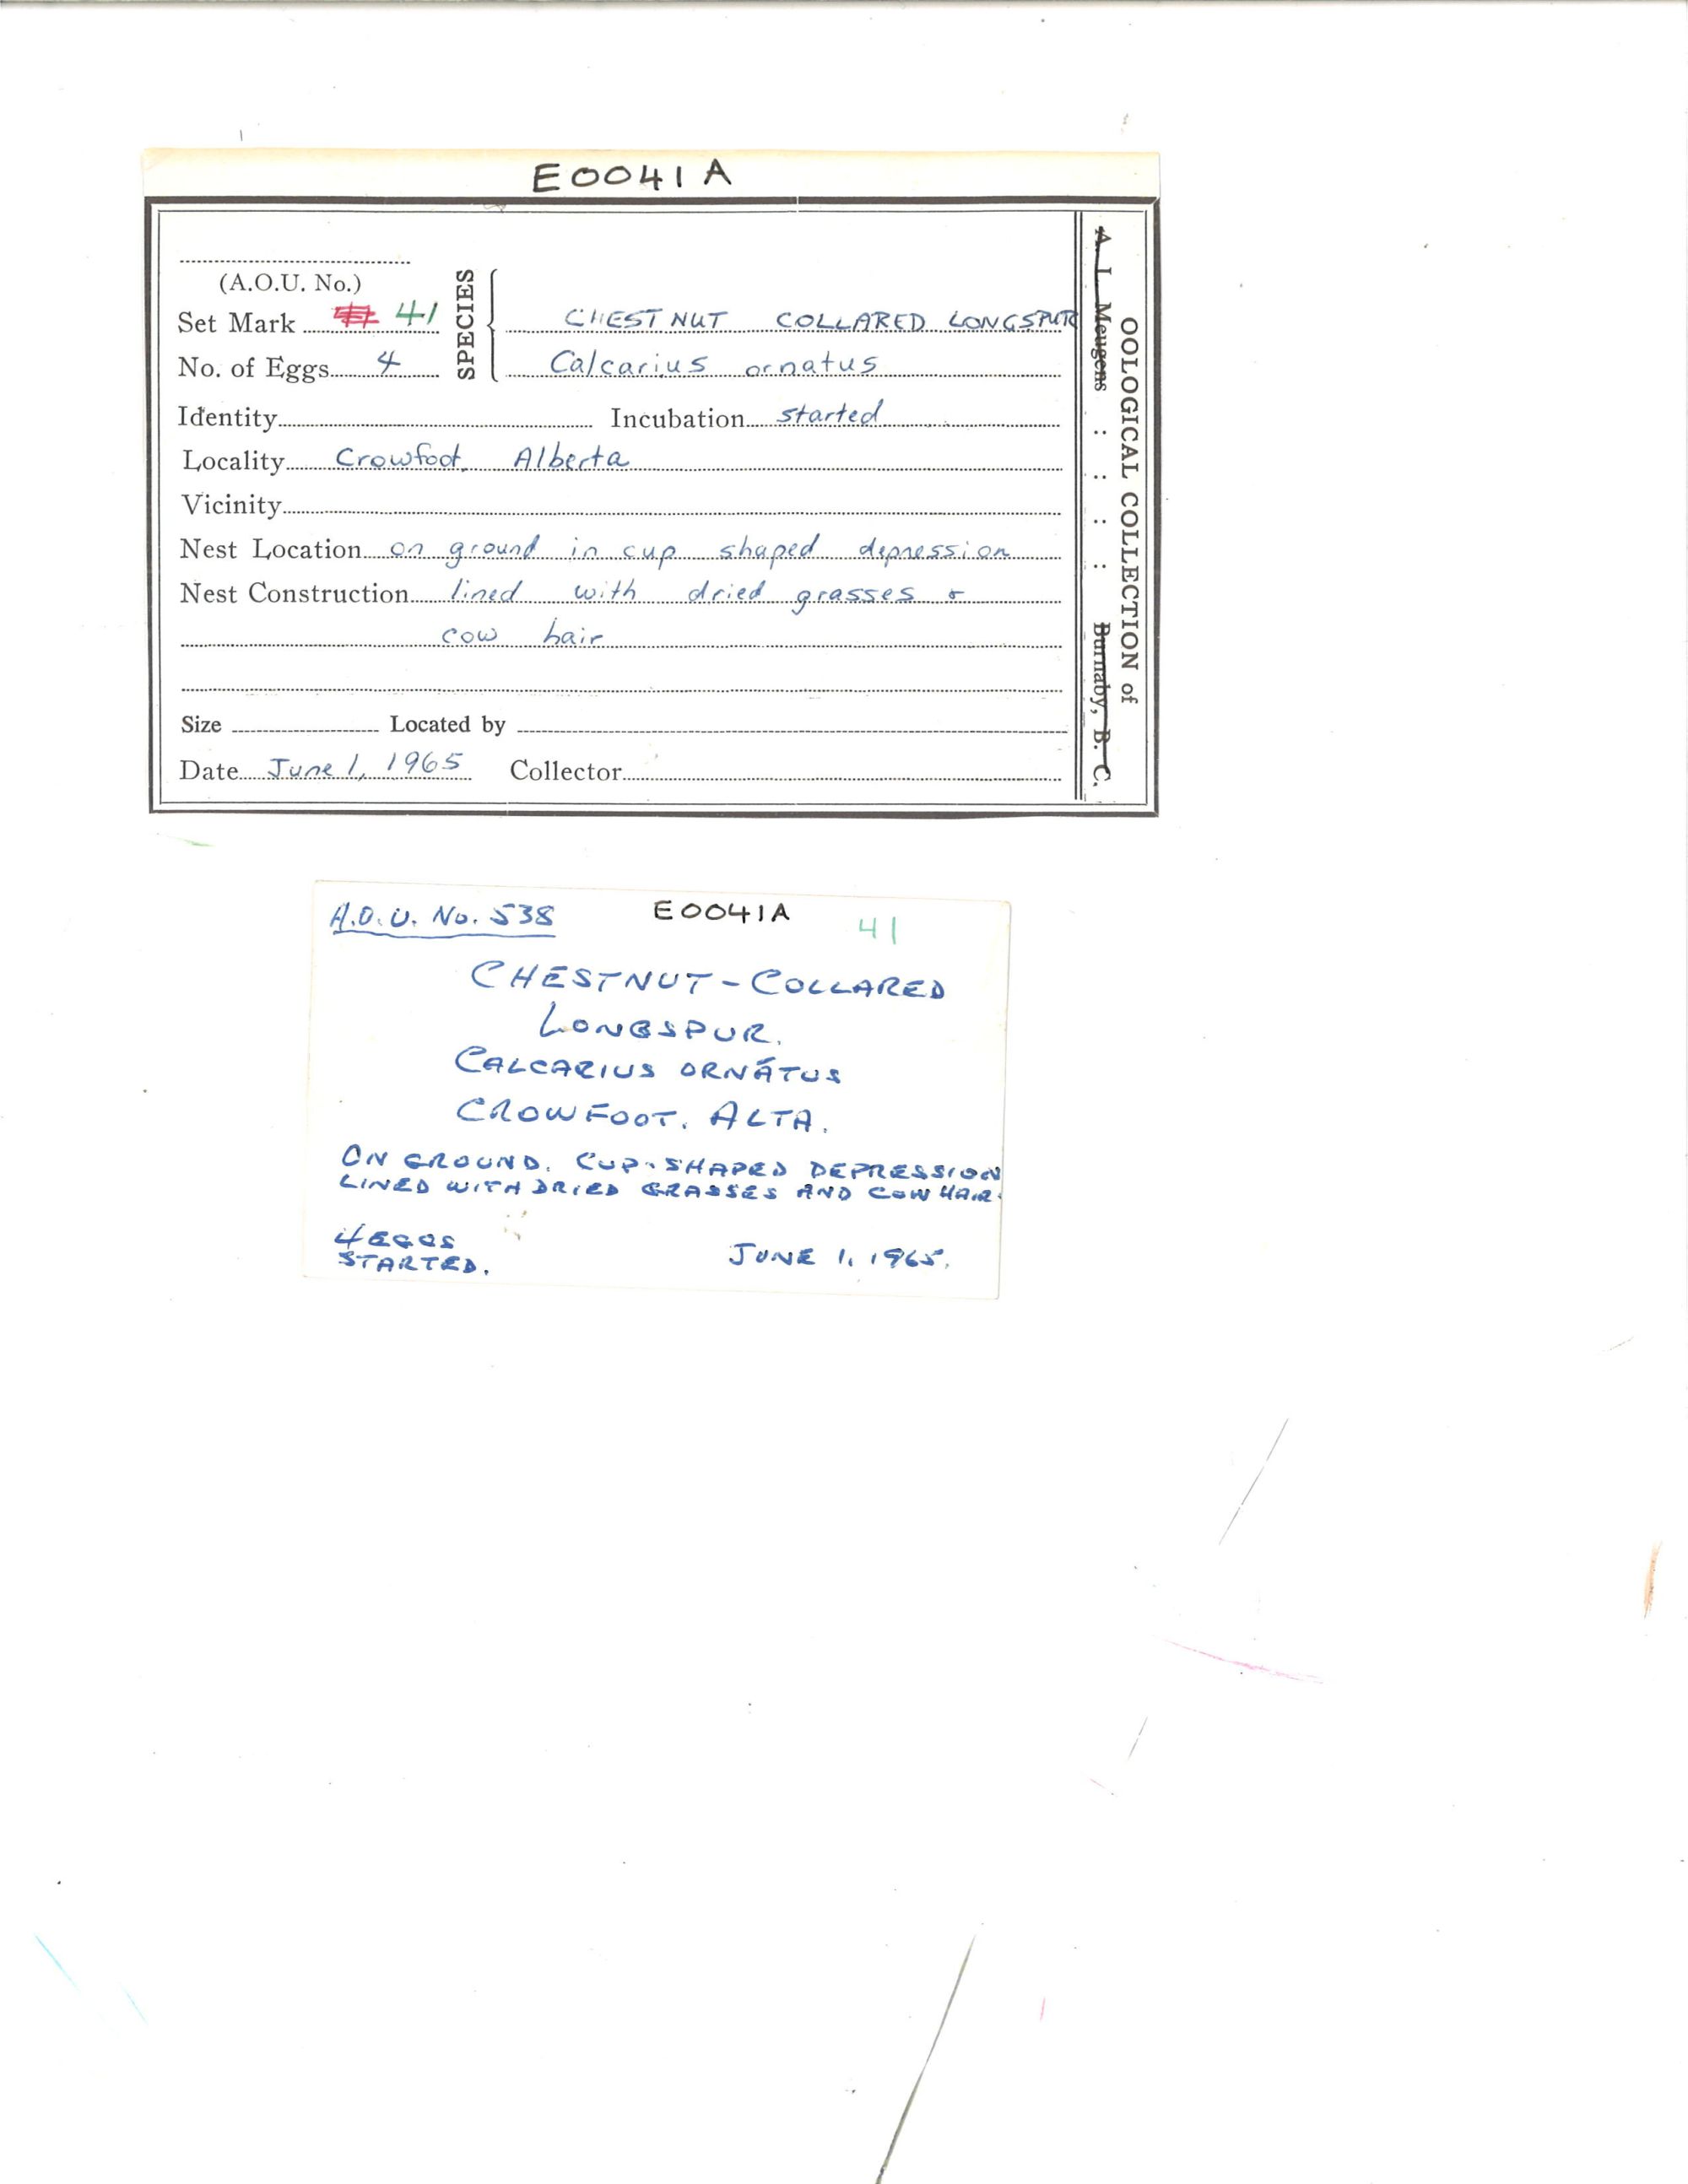 E0041A
(A.O.U. No.)
SPECIES
Set Mark 41 CHESTNUT COLLARED LONGSPUR
No. of Eggs 4 Calcarius ornatus
Identity Incubation started
Locality Crowfoot, Alberta
Vicinity
Nest Location on ground in cup shaped depression
Nest Construction lined with dried grasses &
cow hair
Size Located by
Date June 1, 1965 Collector
OOLOGICAL COLLECTION of
A. L. Meugens : : : : Burnaby, B. C.
A.O.U. No. 538 E0041A 41
CHESTNUT-COLLARED
LONGSPUR.
CALCARIUS ORNÁTUS
CROWFOOT. ALTA.
ON GROUND. CUP-SHAPED DEPRESSION
LINED WITH DRIED GRASSES AND COW HAIR.
4 EGGS
STARTED. JUNE 1, 1965.